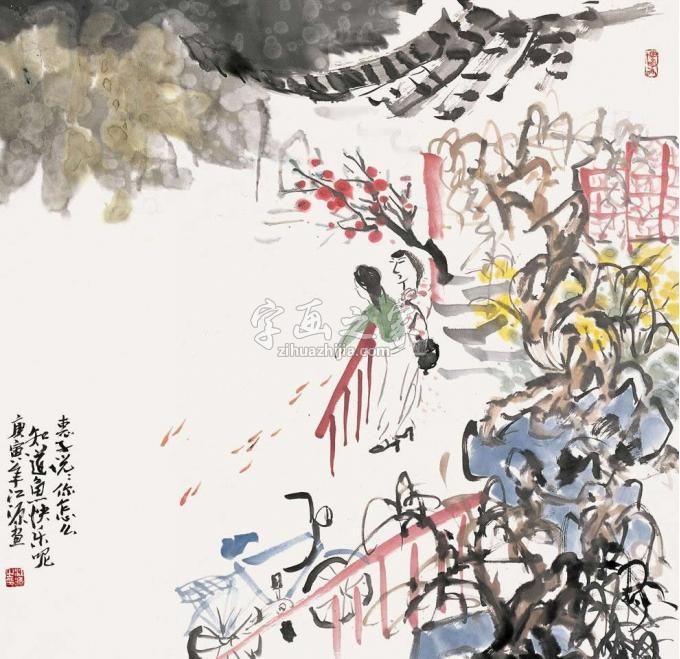 字画之家
zihuazhijia.com
惠子说：你怎么
知道鱼快乐呢
庚寅年江源画